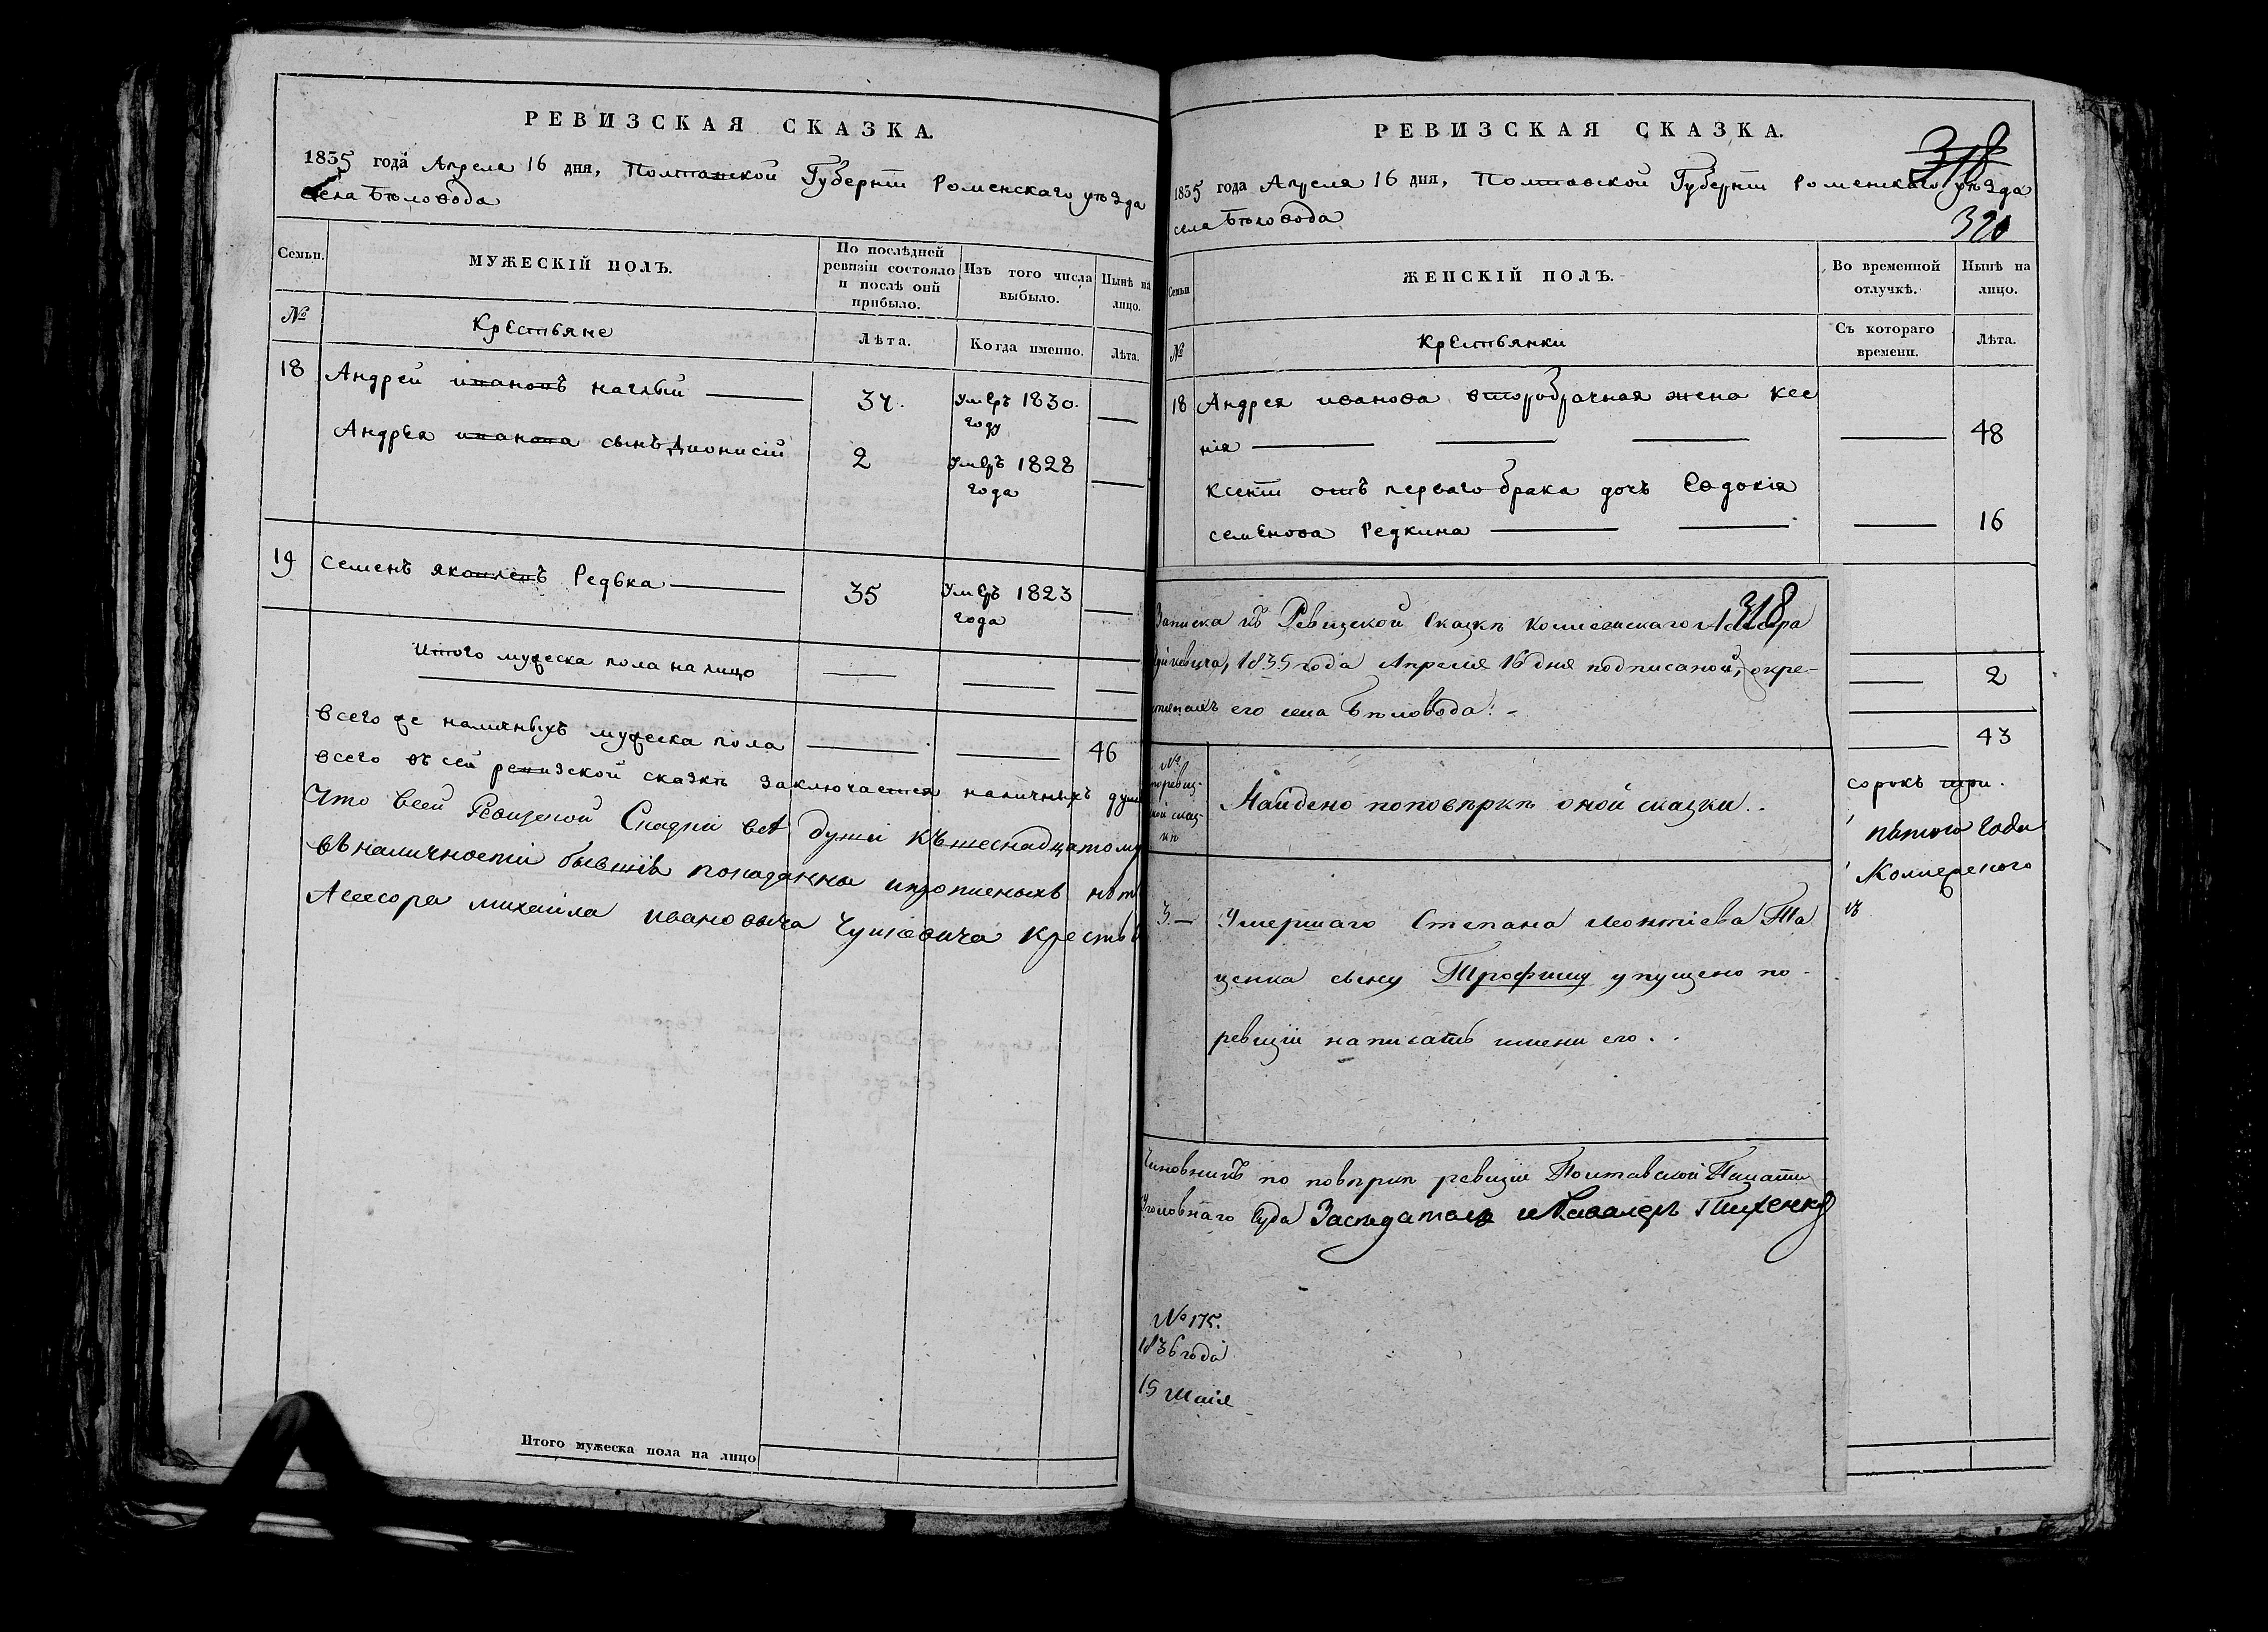 РЕВИЗСКАЯ СКАЗКА.
1835 года Апреля 16 дня, Полтавской Губернiи Роменскаго уѣзда
села Бѣловода
Семьи. МУЖЕСКІЙ ПОЛЪ. По послѣдней ревизіи состояло и послѣ оной прибыло. Изъ того числа выбыло. Нынѣ на лицо.
№ Крестьяне Лѣта. Когда именно. Лѣта.
18 Андрей ивановъ наглый 37. умеръ 1830.
году
Андрея иванова сынъ Дионисій 2 умеръ 1828
года
19 Семенъ яковлевъ Редька 35 умеръ 1823
года
Итого мужеска пола на лицо
всего же наличныхъ мужеска пола 46
всего въ сей ревизской сказкѣ заключается наличныхъ душъ
Что всей Ревизской Сказки всѣ души къ шеснадцатому
въ наличности бывшiе показанны и прописныхъ нѣтъ
Асессора михаила ивановича
Итого мужеска пола на лицо
РЕВИЗСКАЯ СКАЗКА.
318
1835 года Апреля 16 дня, Полтавской Губернiи Роменскаго уѣзда
села Бѣловода
320
Семьи ЖЕНСКІЙ ПОЛЪ. Во временной отлучкѣ. Нынѣ на лицо.
№ Крестьянки Съ котораго времени. Лѣта.
18 Андрея иванова второбрачная жена Ксе
нiя 48
Ксенiи отъ перваго брака дочь Евдокiя
семенова Редкина 16
2
43
сорокъ три.
пятого года
Колежского
318
Записка къ Ревизской Сказкѣ Коллежскаго Асессора
1835 года Апреля 16 дня подписаной, о кре-
его села Бѣловода.
№
по ревиз-
ской сказ-
кѣ
Найдено по повѣркѣ оной сказки.
3. Умершаго Степана Леонтiева Та
ценка сыну Трофиму упущено по
ревизiи написать имени его.
Чиновникъ по повѣркѣ ревизiи Полтавской Палаты
Уголовнаго Суда Засѣдатель и Кавалеръ
№ 175.
1836 года
15 Маiя